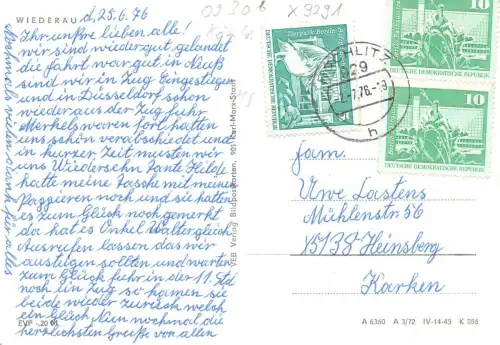 WIEDERAU
d, 25.6.76
Ihr unsre lieben alle!
wir sind wiedergut gelandet
die fahrt war gut in Neuß
sind wir in Zug Eingestiegen
und in Düsseldorf schon
wieder aus der Zug fuhr
Merkels waren fort hatten
uns schon verabschiedet und
in kurzer Zeit musten wir
uns Wiedersehn Tante Hilde
hatte meine Tasche mit meinen
Papieren noch und sie hatten
es zum Glück noch gemerkt
da hat es Onkel Walter gleich
Ausrufen lassen das wir
austeigen sollten und warten
zum Glück fuhr in der 11. Std
noch ein Zug so kamen sie
beide wieder zurück welch
ein Glück Nun nochmal die
herzlichsten Grüße von allen
Nochmals vielen Dank für alles
EVP -,20 M
VEB Verlag Bildpostkarten, 901 Karl-Marx-Stadt
0930b x 9291
Tierpark Berlin
10
DEUTSCHE DEMOKRATISCHE REPUBLIK
10
DEUTSCHE DEMOKRATISCHE REPUBLIK
929
7.76
h
Fam.
Uwe Lastens
Mühlenstr. 56
5138 Heinsberg
Karken
A 6360 A 3/72 IV-14-45 K 286